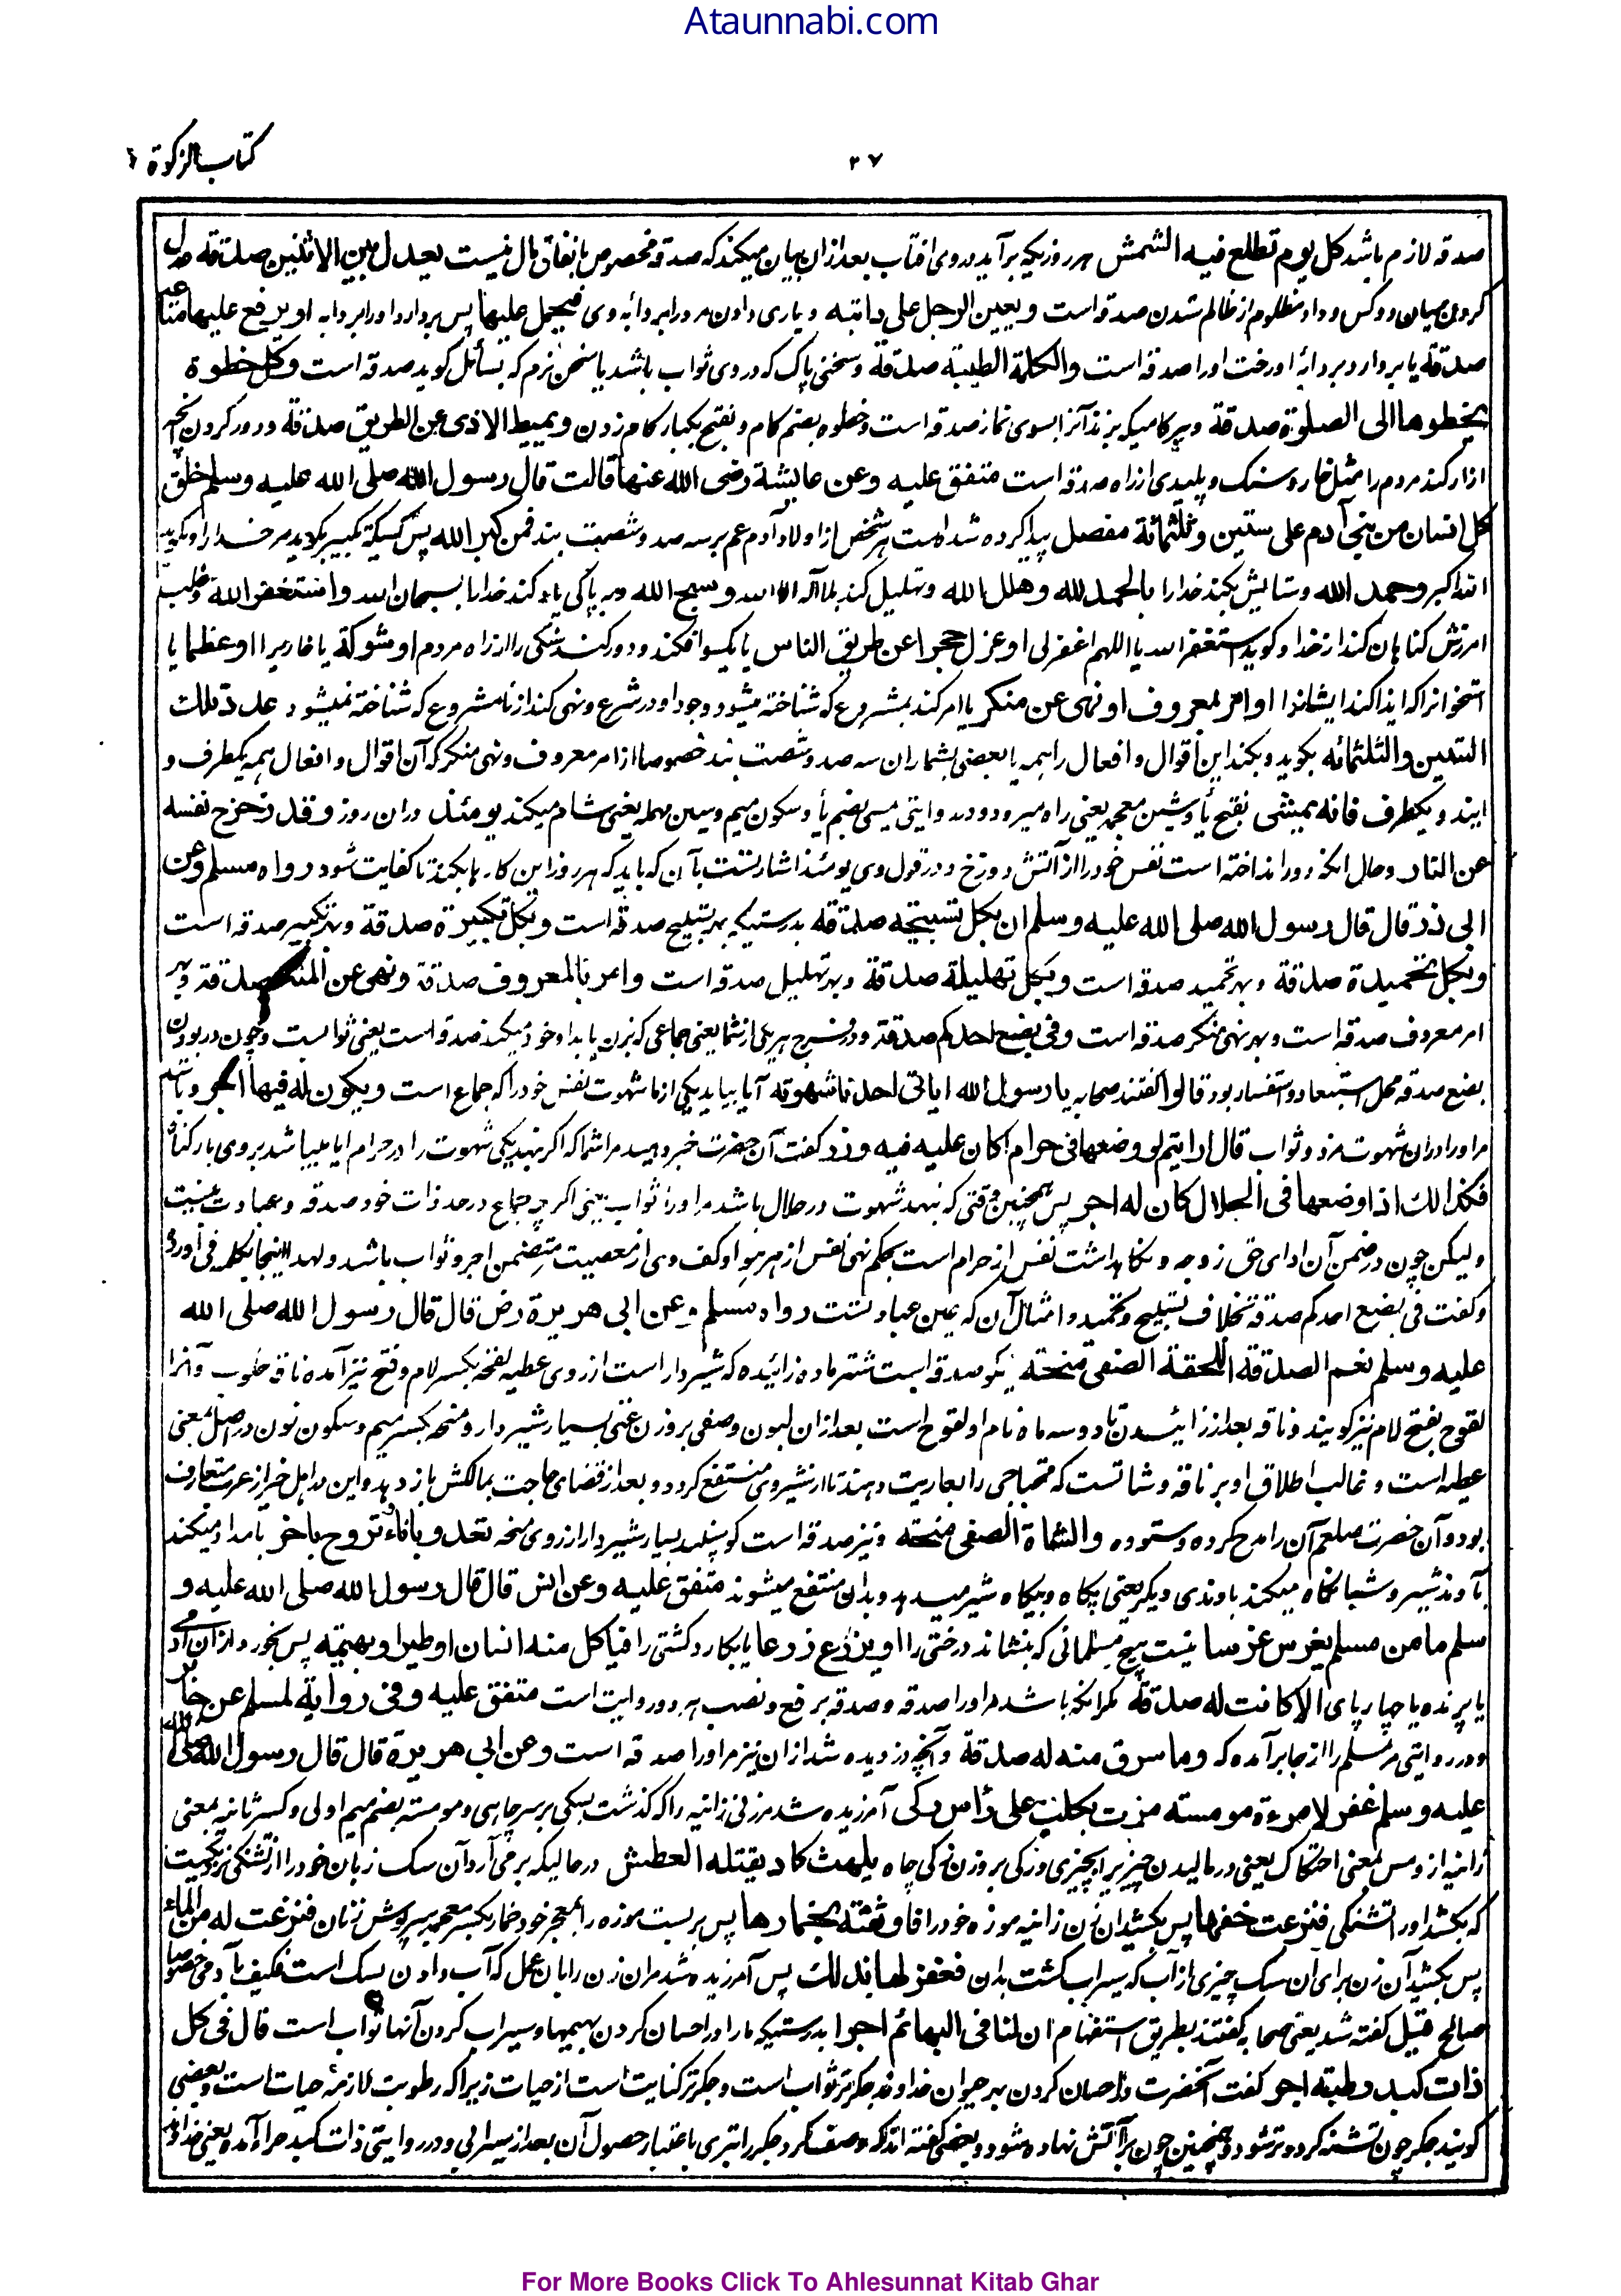 Ataunnabi.com
کتاب الزکوة
٣٧
صدقه لازم باشد کل یوم تطلع فیه الشمش هر روزیکه برآید در وی افتاب بعد ازان بیان میکند که صدقه مخصوص بانفاق مال نیست یعدل بین الاثنین صدقة عدل
کردن میان دو کس و داد مظلوم از ظالم شدن صدقه است ویعین الرجل علی دابته و یاری دادن مر مرد را بر دابه وی فیحمل علیها پس بردارد او را بر دابه او یرفع علیها متاعه
صدقة یا بردارد بر دابه او رخت او را صدقه است والکلمة الطیبة صدقة و سخنی پاک که در وی ثواب باشد یا سخن نرم که بسائل گوید صدقه است وکل خطوة
یخطوها الی الصلوة صدقة وهر گامیکه بزند آنرا بسوی نماز صدقه است وخطوه بضم گام و بفتح یکبار گام زدن ویمیط الاذی عن الطریق صدقة و دور کردن آنچه
ازار کند مردم را مثل خار و سنگ و پلیدی از راه صدقه است متفق علیه وعن عایشة رضی الله عنها قالت قال رسول الله صلی الله علیه وسلم خلق
کل انسان من بنی آدم علی ستین وثلثمائة مفصل پیدا کرده شده است هر شخص از اولاد آدم عم بر سه صد و شصت بند فمن کبر الله پس کسیکه تکبیر بگوید مر خدا را و گوید
الله اکبر وحمد الله وستایش بکند خدا را بالحمد لله وهلل الله وتهلیل کند بلا اله الا الله وسبح الله وبه پاکی یاد کند خدا را بسبحان الله واستغفر الله وطلب
امرزش گناهان کند از خدا و گوید استغفر الله یا اللهم اغفر لی او عزل حجرا عن طریق الناس یا یکسو افکند و دور کند سنگی را از راه مردم او شوکة یا خاریرا او عظما یا
استخوانرا که ایذا کند ایشانرا او امر بمعروف او نهی عن منکر یا امر کند بمشروع که شناخته میشود وجود او در شرع و نهی کند از نامشروع که شناخته نمیشود عدد تلك
الستین والثلثمائة بگوید و بکند این اقوال و افعال را همه یا بعضی بشمار ان سه صد و شصت بند خصوصا از امر معروف و نهی منکر که آن اقوال و افعال همه یکطرف و
ایند و یکطرف فانه یمشی بفتح یا و شین معجمه یعنی راه میرود و در روایتی یمسی بضم یا و سکون میم وسین مهمله یعنی شام میکند یومئذ دران روز وقد زحزح نفسه
عن النار وحال انکه دور انداخته است نفس خود را از آتش دوزخ و در قول وی یومئذ اشارتست بآن که باید که هر روز این کار ها بکند تا کفایت شود رواه مسلم وعن
ابی ذر قال قال رسول الله صلی الله علیه وسلم ان بکل تسبیحة صدقة بدرستیکه بهر تسبیح صدقه است وبکل تکبیرة صدقة وبهر تکبیر صدقه است
وبکل تحمیدة صدقة و بهر تحمید صدقه است وبکل تهلیلة صدقة وبهر تهلیل صدقه است وامر بالمعروف صدقة ونهی عن المنکر صدقة وبهر
امر معروف صدقه است و بهر نهی منکر صدقه است وفی بضع احدکم صدقة ودر فرج هر یکی از شما یعنی جماعی که بزن یا بداه خود میکند صدقه است یعنی ثوابست وچون در بودن
بضع صدقه محل استبعاد و استفسار بود قالوا گفتند صحابه یا رسول الله ایاتی احدنا شهوته آیا بیاید یکی از ما شهوت نفس خود را که جماع است ویکون له فیها اجر وباشد
مر او را دران شهوت مزد و ثواب قال ارایتم لو وضعها فی حرام اکان علیه فیه وزر گفت آن حضرت خبر دهید مرا شما که اگر بنهد یکی شهوت را در حرام ایا میباشد بر وی بار گناه
فکذالك اذا وضعها فی الحلال کان له اجر پس همچنین وقتی که بنهد شهوت در حلال باشد مر او را ثواب یعنی اگر چه جماع در حد ذات خود صدقه و عبادت نیست
ولیکن چون در ضمن آن ادای حق زوجه و نگاهداشت نفس از حرام است بحکم نهی نفس از هر هوا و کف وی از معصیت متضمن اجر و ثواب باشد ولهذا اینجا کلمه فی آورده
وگفت فی بضع احدکم صدقة بخلاف تسبیح وتحمید و امثال آن که عین عبادتست رواه مسلم وعن ابی هریرة رض قال قال رسول الله صلی الله
علیه وسلم نعم الصدقة اللقحة الصفی منحة نیکو صدقه ایست شتر ماده زائیده که شیردار است از روی عطیه لقحه بکسر لام و فتح نیز آمده ناقه حلوب وآنرا
لقوح بفتح لام نیز گویند وناقه بعد از زائیدن تا دو سه ماه نام او لقوح است بعد ازان لبون وصفی بروزن غنی بسیار شیردار و منحه بکسر میم و سکون نون در اصل بمعنی
عطیه است و غالب اطلاق او بر ناقه و شاتست که محتاجی را بعاریت دهند تا از شیر وی منتفع گردد و بعد از قضای حاجت بمالکش باز دهد و این در اهل خیر از عرب متعارف
بود و آن حضرت صلعم آن را مدح کرده وستوده والشاة الصفی منحة و نیز صدقه است گوسپند بسیار شیردار از روی منحه تغدو باناء وتروح باخر بامداد میکند
بآوند شیر و شبانگاه میکند باوندی دیگر یعنی پگاه و بیگاه شیر میدهد و بدان منتفع میشوند متفق علیه وعن انس قال قال رسول الله صلی الله علیه و
سلم ما من مسلم یغرس غرسا نیست هیچ مسلمانی که بنشاند درختی را او یزرع زرعا یا بکارد کشتی را فیاکل منه انسان او طیر او بهیمة پس بخورد ازان آدمی
یا پرنده یا چارپای الا کانت له صدقة مگر انکه باشد مر او را صدقه و صدقه برفع و نصب هر دو روایت است متفق علیه وفی روایة لمسلم عن جابر
ودر روایتی مر مسلم را از جابر آمده که وما سرق منه له صدقة وآنچه دزدیده شد ازان نیز مر او را صدقه است وعن ابی هریرة قال قال رسول الله صلی الله
علیه وسلم غفر لامرءة مومسة مرت بکلب علی رأس رکی آمرزیده شد مر زنی زانیه را که گذشت بسگی بر سر چاهی و مومسه بضم میم اولی و کسر ثانیه بمعنی
زانیه از ومس بمعنی احتکاک یعنی در مالیدن چیزی را بچیزی ورکی بروزن زکی چاه یلهث کاد یقتله العطش در حالیکه بر می آرد آن سگ زبان خود را از تشنگی نزدیکست
که بکشد او را تشنگی فنزعت خفها پس بکشید ان زن زانیه موزه خود را فاوثقته بخمارها پس بربست موزه را بمعجر خود خمار بکسر معجمه سرپوش زنان فنزعت له من الماء
پس بکشید آن زن برای ان سگ چیزی از آب که سیراب گشت بدان فغفر لها بذلك پس آمرزیده شد مر ان زن را بان عمل که آب دادن سگ است فکیف بآدمی خصوصا
صالح قیل گفته شد یعنی صحابه گفتند بطریق استفهام ان لنا فی البهائم اجرا بدرستیکه مارا در احسان کردن بهیمها و سیراب کردن آنها ثواب است قال فی کل
ذات کبد رطبة اجر گفت آنحضرت در احسان کردن بهر حیوان خداوند جگر تر ثواب است وجگر تر کنایت است از حیات زیرا که رطوبت لازمه حیات است وبعضی
گویند جگر چون تشنه گردد تر شود وهمچنین چون بر آتش نهاده شود وبعضی گفته اند که وصف کرد جگر را بتری باعتبار حصول آن بعد از سیرابی ودر روایتی ذات کبد حراء آمده یعنی خداوند
For More Books Click To Ahlesunnat Kitab Ghar